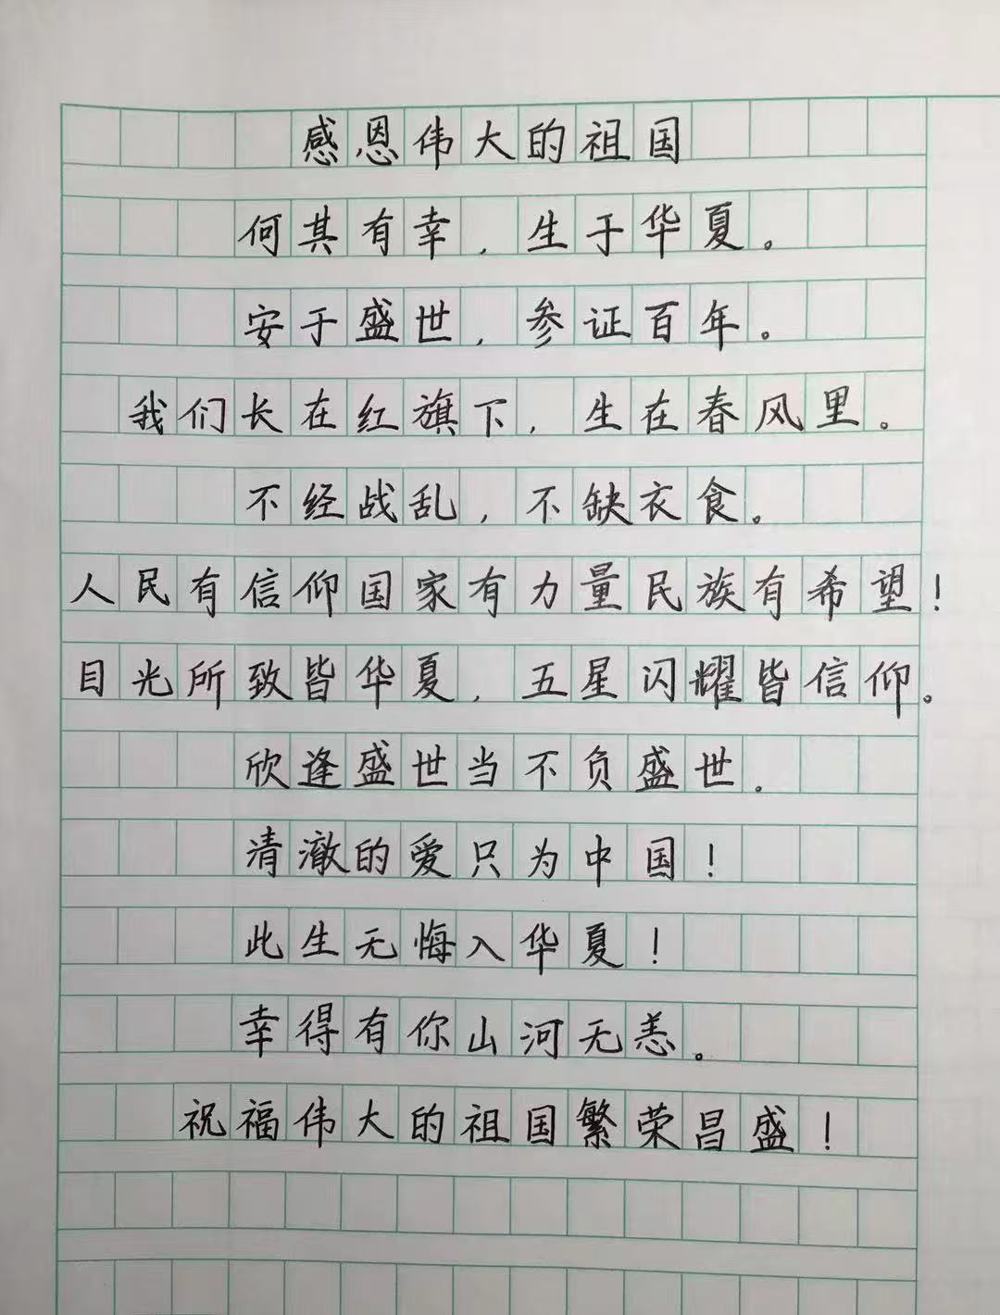 感恩伟大的祖国
何其有幸，生于华夏。
安于盛世，参证百年。
我们长在红旗下，生在春风里。
不经战乱，不缺衣食。
人民有信仰国家有力量民族有希望！
目光所致皆华夏，五星闪耀皆信仰。
欣逢盛世当不负盛世。
清澈的爱只为中国！
此生无悔入华夏！
幸得有你山河无恙。
祝福伟大的祖国繁荣昌盛！